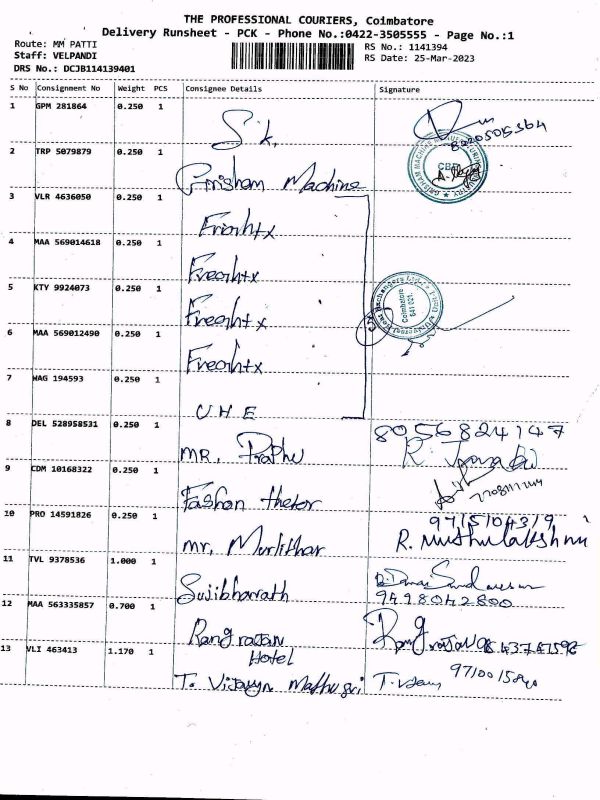 THE PROFESSIONAL COURIERS, Coimbatore
Delivery Runsheet - PCK - Phone No.:0422-3505555 - Page No.:1
Route: MM PATTI
RS No.: 1141394
Staff: VELPANDI
RS Date: 25-Mar-2023
DRS No.: DCJB114139401
S No Consignment No Weight PCS Consignee Details Signature
1 GPM 281864 0.250 1
S.K.
2 TRP 5079879 0.250 1
Grisham Machine
3 VLR 4636050 0.250 1
4 MAA 569014618 0.250 1
Freahtx
5 KTY 9924073 0.250 1
Coimbatore
641 021.
Freahtx
6 MAA 569012490 0.250 1
Freahtx
7 WAG 194593 0.250 1
UHE
8 DEL 528958531 0.250 1 8056824147
MR. Prabhu
9 CDM 10168322 0.250 1
Fashon
10 PRO 14591826 0.250 1 9715104319
mr. Murlithar R. Muthulakshmi
11 TVL 9378536 1.000 1
Sujibharath 9498042800
12 MAA 563335857 0.700 1
Rangrajan
Hotel
13 VLI 463413 1.170 1
T.